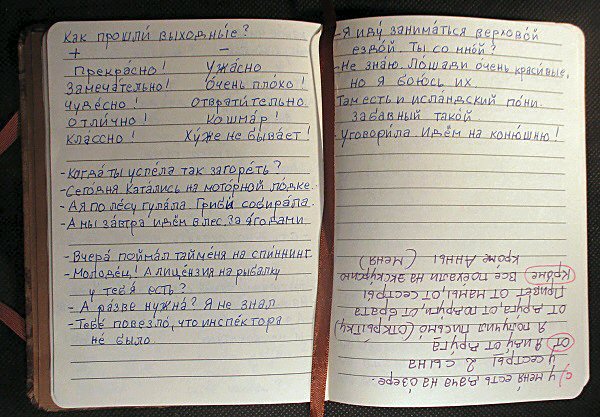 Как прошли́ выходны́е?
+ −
Прекра́сно! Ужа́сно
Замеча́тельно! О́чень пло́хо!
Чуде́сно! Отврати́тельно.
Отли́чно! Кошма́р!
Кла́ссно! Ху́же не быва́ет!
- Когда́ ты успе́ла так загоре́ть?
- Сего́дня Ката́лись на мото́рной ло́дке.
- А я по ле́су гуля́ла. Грибы́ собира́ла.
- А мы за́втра идём в лес. За я́годами
- Вчера́ пойма́л тайме́ня на спи́ннинг.
- Молоде́ц! А лице́нзия на рыба́лку
у тебя́ есть?
- А ра́зве нужна́? Я не знал
- Тебе́ повезло́, что инспе́ктора
не́ было.
- Я иду́ занима́ться верхово́й
ездо́й. Ты со мной?
- Не зна́ю. Ло́шади о́чень краси́вые,
но я бою́сь их.
Там есть и исла́ндский по́ни.
Заба́вный тако́й
Уговори́ла. Идём на коню́шню!
с/у У меня́ есть да́ча на о́зере.
У сестры́ 2 сы́на
от Я иду́ от дру́га
Я получи́л письмо́ (откры́тку)
от дру́га от подру́ги от бра́та
Приве́т от ма́мы, от сестры́
Кро́ме Все пое́хали на экску́рсию
кро́ме А́нны (меня́)